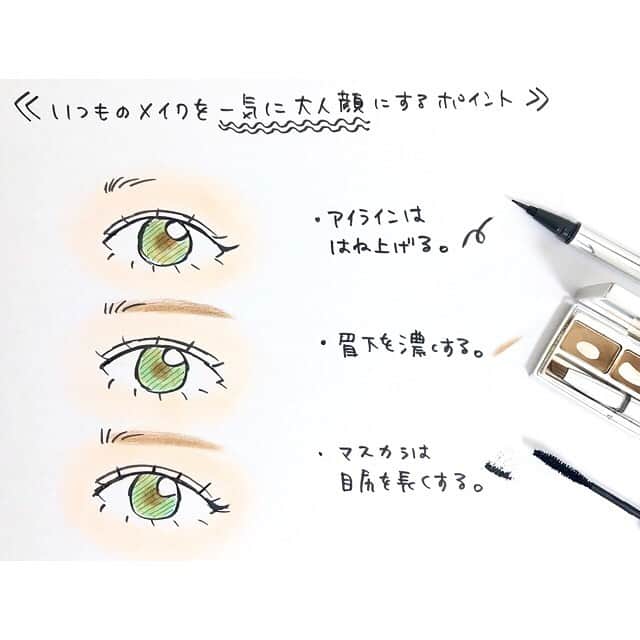 ≪いつものメイクを一気に大人顔にするポイント≫
・アイラインは
はね上げる。
・眉下を濃くする。
・マスカラは
目尻を長くする。